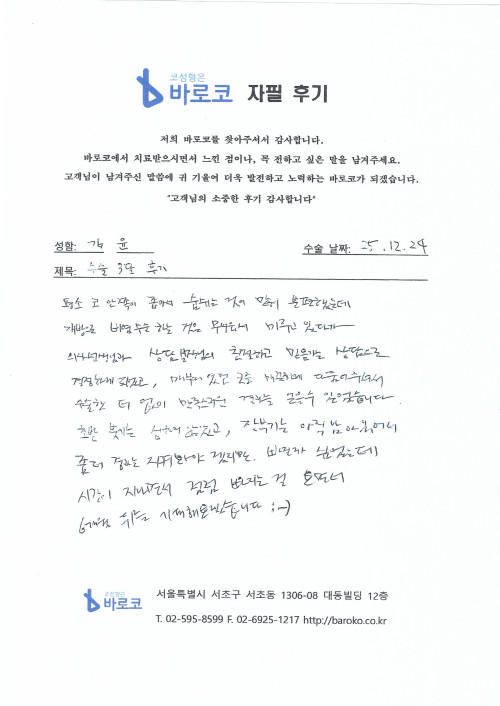 코성형은
바로코 자필 후기
저희 바로코를 찾아주셔서 감사합니다.
바로코에서 치료받으시면서 느낀 점이나, 꼭 전하고 싶은 말을 남겨주세요.
고객님이 남겨주신 말씀에 귀 기울여 더욱 발전하고 노력하는 바로코가 되겠습니다.
"고객님의 소중한 후기 감사합니다"
성함: 윤 수술 날짜: 25.12.24
제목: 수술 3달 후기
평소 코 안쪽이 좁아서 숨쉬는 것이 많이 불편했는데
개방로 하는 것은 무서워서 미루고 있다가
의사선생님과 상담실장님의 친절하고 믿음가는 상담으로
결정하게 됐고, 코를 다듬어주셔서
수술한 더 없이 만족스러운 결과를 얻을수 있었습니다.
초반 붓기는 심하지 않았고, 잔부기는 아직 남아있어서
좀더 경과는 지켜봐야 겠지만, 싶었는데
시간이 지나면서 점점 걸 보면서
6개월 뒤를 기대해보겠습니다 ;-)
코성형은
바로코
서울특별시 서초구 서초동 1306-08 대동빌딩 12층
T. 02-595-8599 F. 02-6925-1217 http://baroko.co.kr